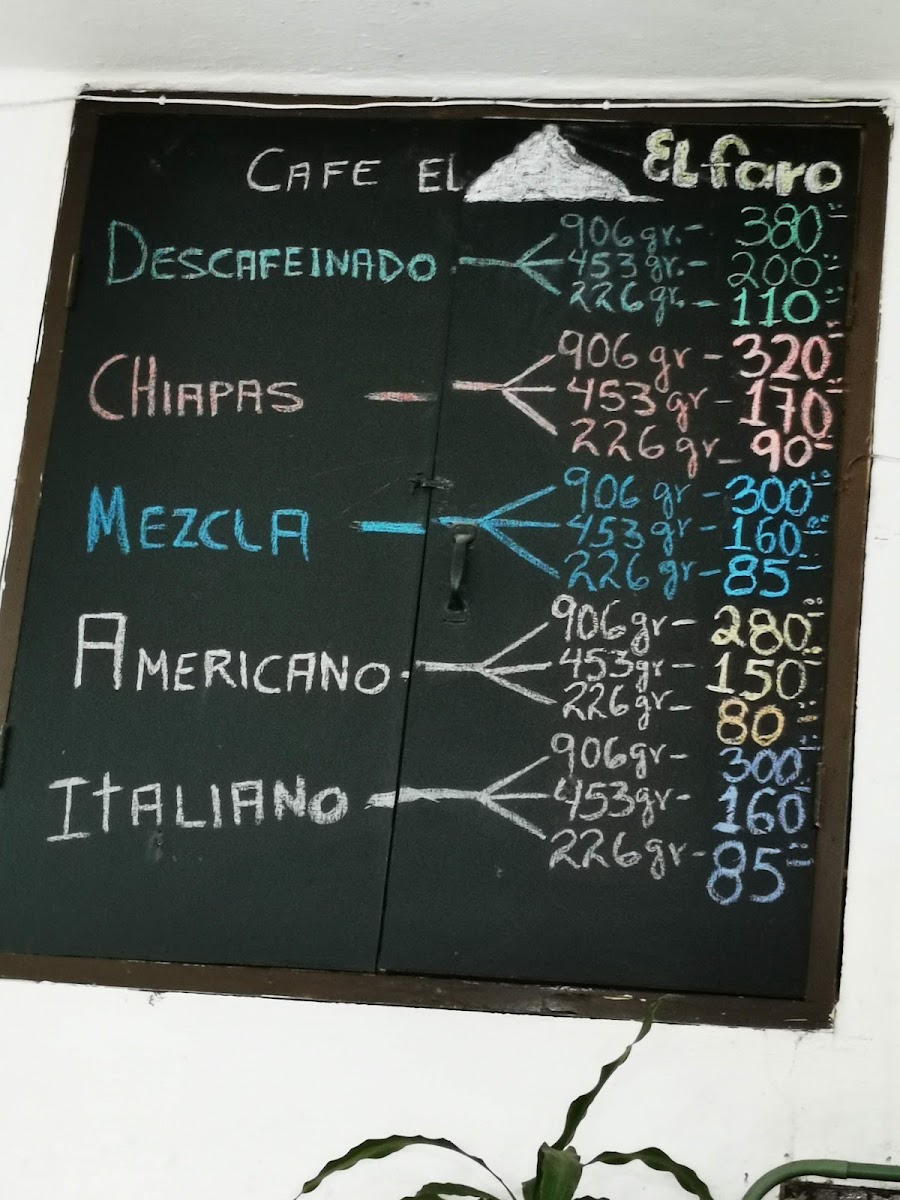 CAFE EL EL faro
DESCAFEINADO 906 gr.- 380
453 gr.- 200
226 gr. - 110
CHIAPAS - 906 gr - 320
453 gr - 170
226 gr - 90
MEZCLA - 906 gr - 300
453 gr - 160
226 gr - 85
AMERICANO 906 gr- 280
453 gr- 150
226 gr- 80
ITALIANO 906 gr- 300
453 gr- 160
226 gr- 85